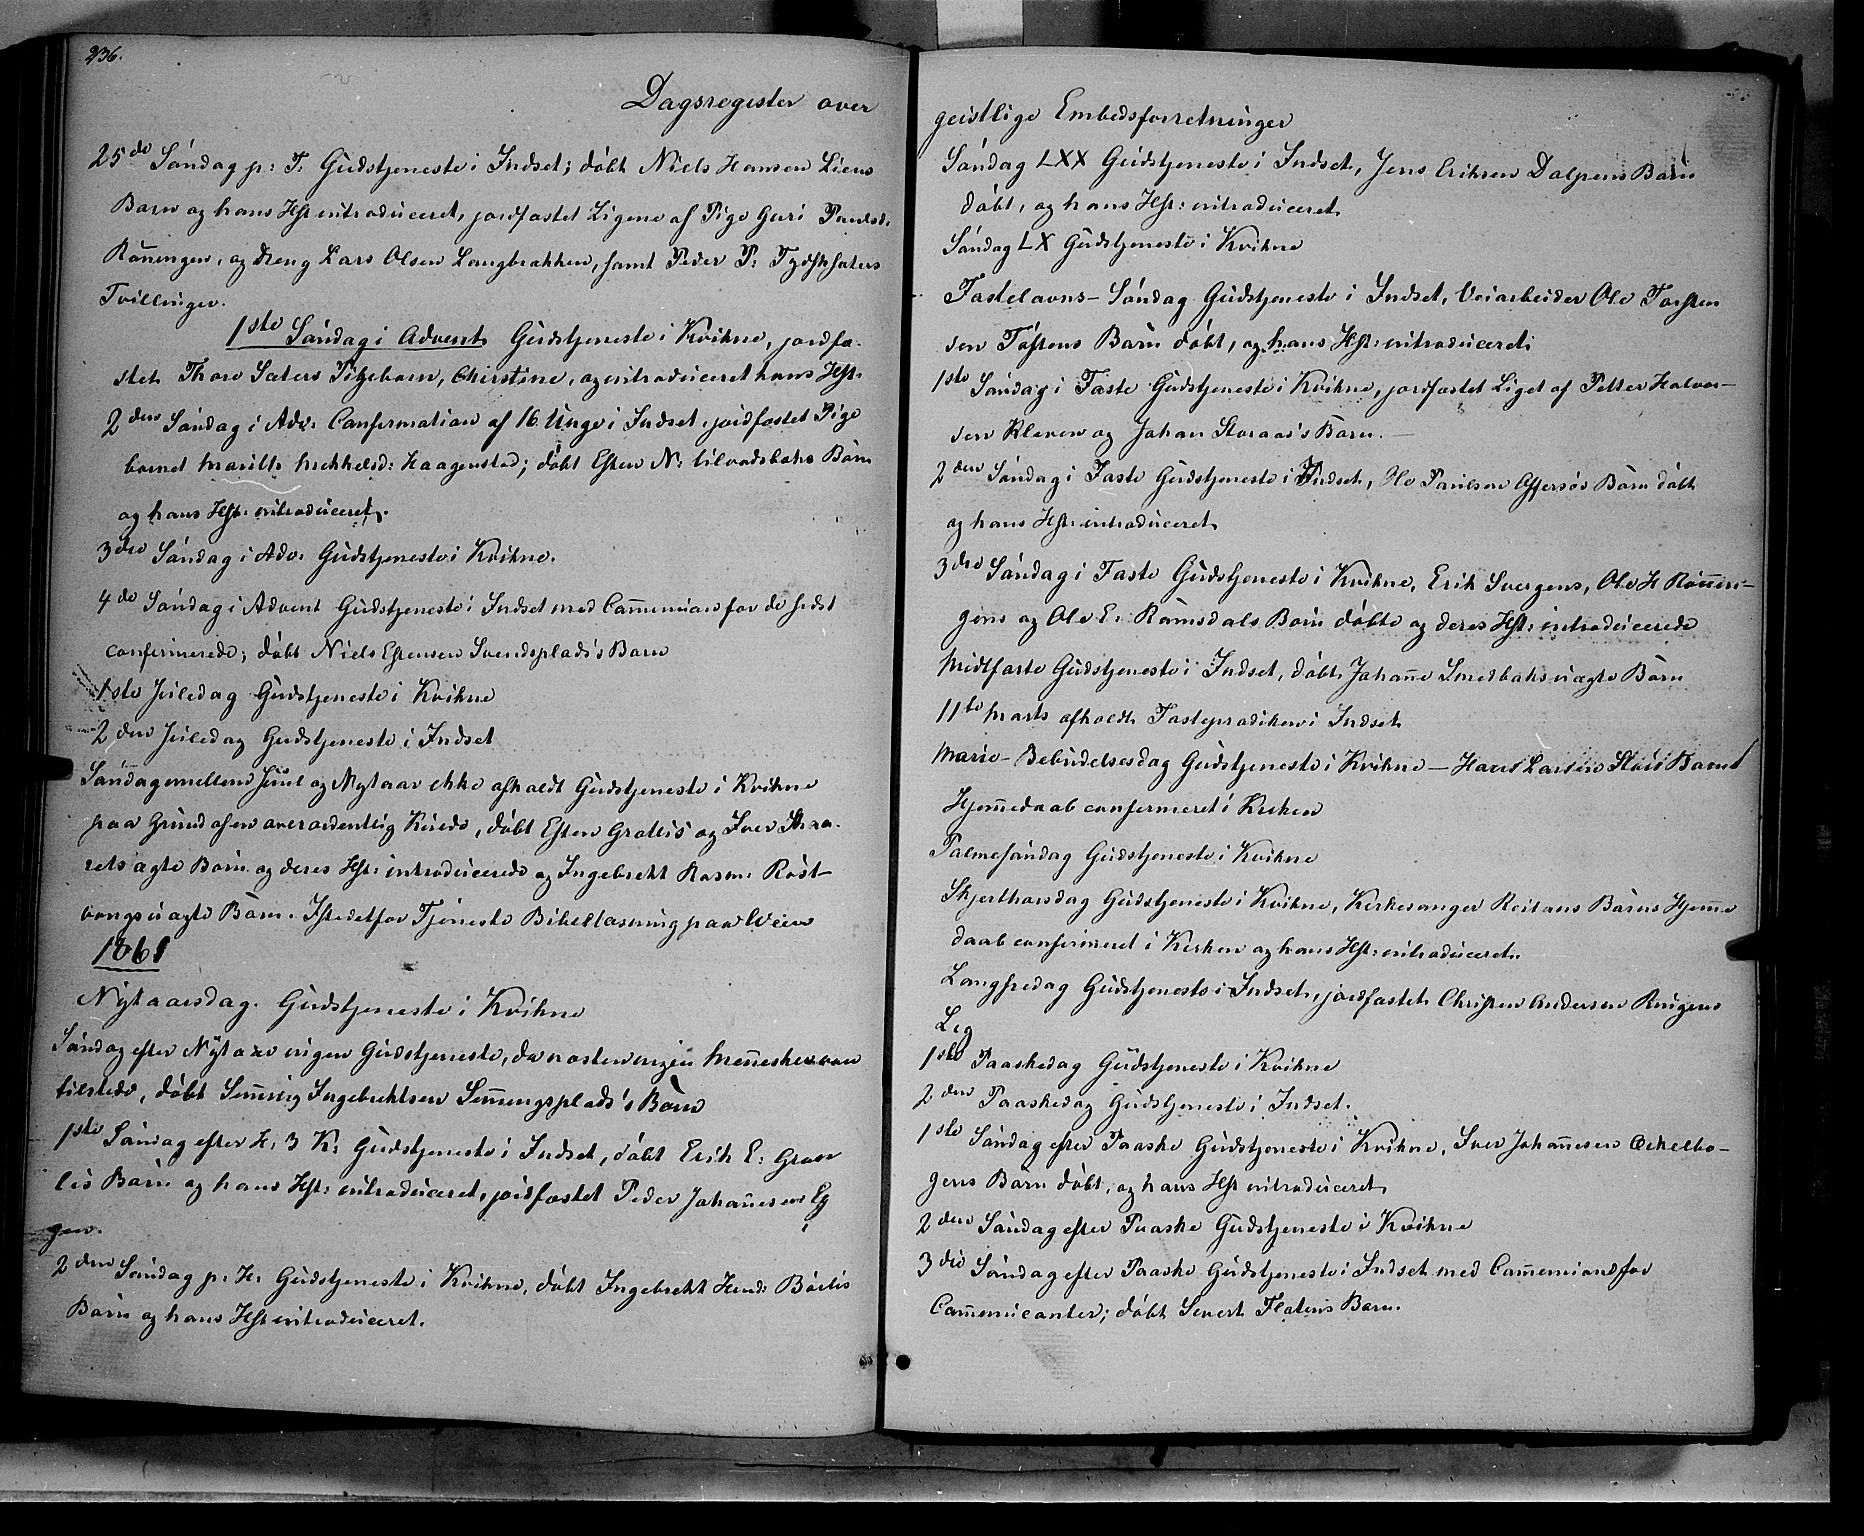 236.
Dagsregister over
25de Søndag p: T. Gudstjeneste i Indset; døbt Niels Hansen Liens
Barn og hans Hst introduceret, jordfæstet Ligene af Pige Guri Paulsd.
Rønningen, og Dreng Lars Olsen Langbrækken, samt Peder P:
Tvillinger.
1ste Søndag i Advent Gudstjeneste i Kvikne, jordfæ-
stet Thore Sæters Pigebarn, Christine, og introduceret hans Hst.
2den Søndag i Adv. Confirmation af 16 Unge i Indset, jordfæstet Pige
barnet Marith Haagenstad; døbt Esten N: Barn
og hans Hst: introduceret.
3die Søndag i Adv. Gudstjeneste i Kvikne.
4de Søndag i Advent Gudstjeneste i Indset med Cam̄union for de sidst
confirmerede; døbt Niels Estensen Svendsplads's Barn
1ste Juledag Gudstjeneste i Kvikne
2den Juledag Gudstjeneste i Indset
Søndag mellem Juul og Nytaar ikke afholdt Gudstjeneste i Kvikne
paa Grund af en overordentlig Kulde, døbt Esten Grøtlis og Iver
ægte Børn og deres Hst: introducerede og Ingebrekt Rasm: Røst-
vangs uægte Barn. Istedetfor Tjeneste Bibellæsning paa Weien
1861
Nytaarsdag. Gudstjeneste i Kvikne
Søndag efter Nytaar ingen Gudstjeneste, da næsten ingen Men̄esker var
tilstede, døbt Ingebrektsen Barn
1ste Søndag efter H. 3 K: Gudstjeneste i Indset, døbt Erik E: Grøt
lis Barn og hans Hst: introduceret, jordfæstet Peder Johan̄esen Eg
gen.
2den Søndag p: H: Gudstjeneste i Kvikne, døbt Ingebrekt Hend: Børlis
Barn og hans Hst introduceret.
geistlige Embedsforretninger
Søndag LXX Gudstjeneste i Indset, Jens Eriksen Dalpens Barn
døbt, og hans Hst: introduceret.
Søndag LX Gudstjeneste i Kvikne
Fastelavns-Søndag Gudstjeneste i Indset, Veiarbeider Ole Torsten
sen Toftens Barn døbt, og hans Hst: introduceret
1ste Søndag i Faste Gudstjeneste i Kvikne, jordfæstet Liget af Petter Halvor-
sen Kleven og Johan Storaas's Barn.
2den Søndag i Faste Gudstjeneste i Indset, Ole Paulsen Barn døbt
og hans Hst: introduceret
3die Søndag i Faste Gudstjeneste i Kvikne, Erik Svergens, Ole H Røn̄in-
gens og Ole E. Ramsdals Børn døbte og deres Hst: introducerede
Midtfaste Gudstjeneste i Indset, døbt Johan̄e Smedbaks uægte Barn
11te Marts afholdt Fasteprædiken i Indset
Marie-Bebudelsesdag Gudstjeneste i Kvikne – Hans Larsen Barns
Hjem̄edaab confirmeret i Kirken
Palmesøndag Gudstjeneste i Kvikne
Skjærthorsdag Gudstjeneste i Kvikne, Kirkesanger Reitans Barns Hjem̄e
daab confirmeret i Kirken og hans Hst: introduceret.
Langfredag Gudstjeneste i Indset, jordfæstet Christen Andersen Ringens
Lig
1ste Paaskedag Gudstjeneste i Kvikne
2den Paaskedag Gudstjeneste i Indset.
1ste Søndag efter Paaske Gudstjeneste i Kvikne, Iver Johan̄esen Œckelbo-
gens Barn døbt, og hans Hst introduceret
2den Søndag efter Paaske Gudstjeneste i Kvikne
3die Søndag efter Paaske Gudstjeneste i Indset med Cam̄union for
Cam̄unicanter; døbt Sivert Flatens Barn.